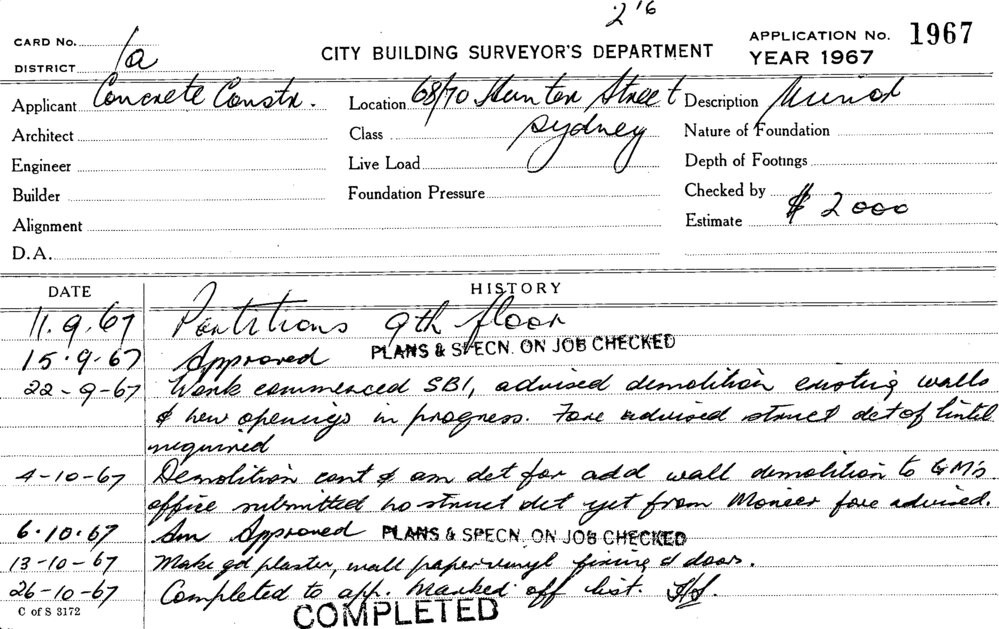 2'6
CARD No. 1a
DISTRICT
CITY BUILDING SURVEYOR'S DEPARTMENT
APPLICATION No. 1967
YEAR 1967
Applicant Concrete Constr.
Location 68/70 Hunter Street
Sydney
Description Minor
Architect
Class
Nature of Foundation
Engineer
Live Load
Depth of Footings
Builder
Foundation Pressure
Checked by
Alignment
Estimate $ 2000
D.A.
DATE HISTORY
11.9.67 Partitions 9th floor
15.9.67 Approved PLANS & SPECN. ON JOB CHECKED
22-9-67 Work commenced SB1, advised demolition existing walls
& new openings in progress. Fore advised struct det of lintel
required
4-10-67 Demolition cont & am det for add wall demolition to G.M's
office submitted no struct det yet from Monier fore advised.
6.10.67 Am Approved PLANS & SPECN. ON JOB CHECKED
13-10-67 Make gd plaster, wall paper vinyl fixing & doors.
26-10-67 Completed to app. Marked off list.
C of S 3172
COMPLETED